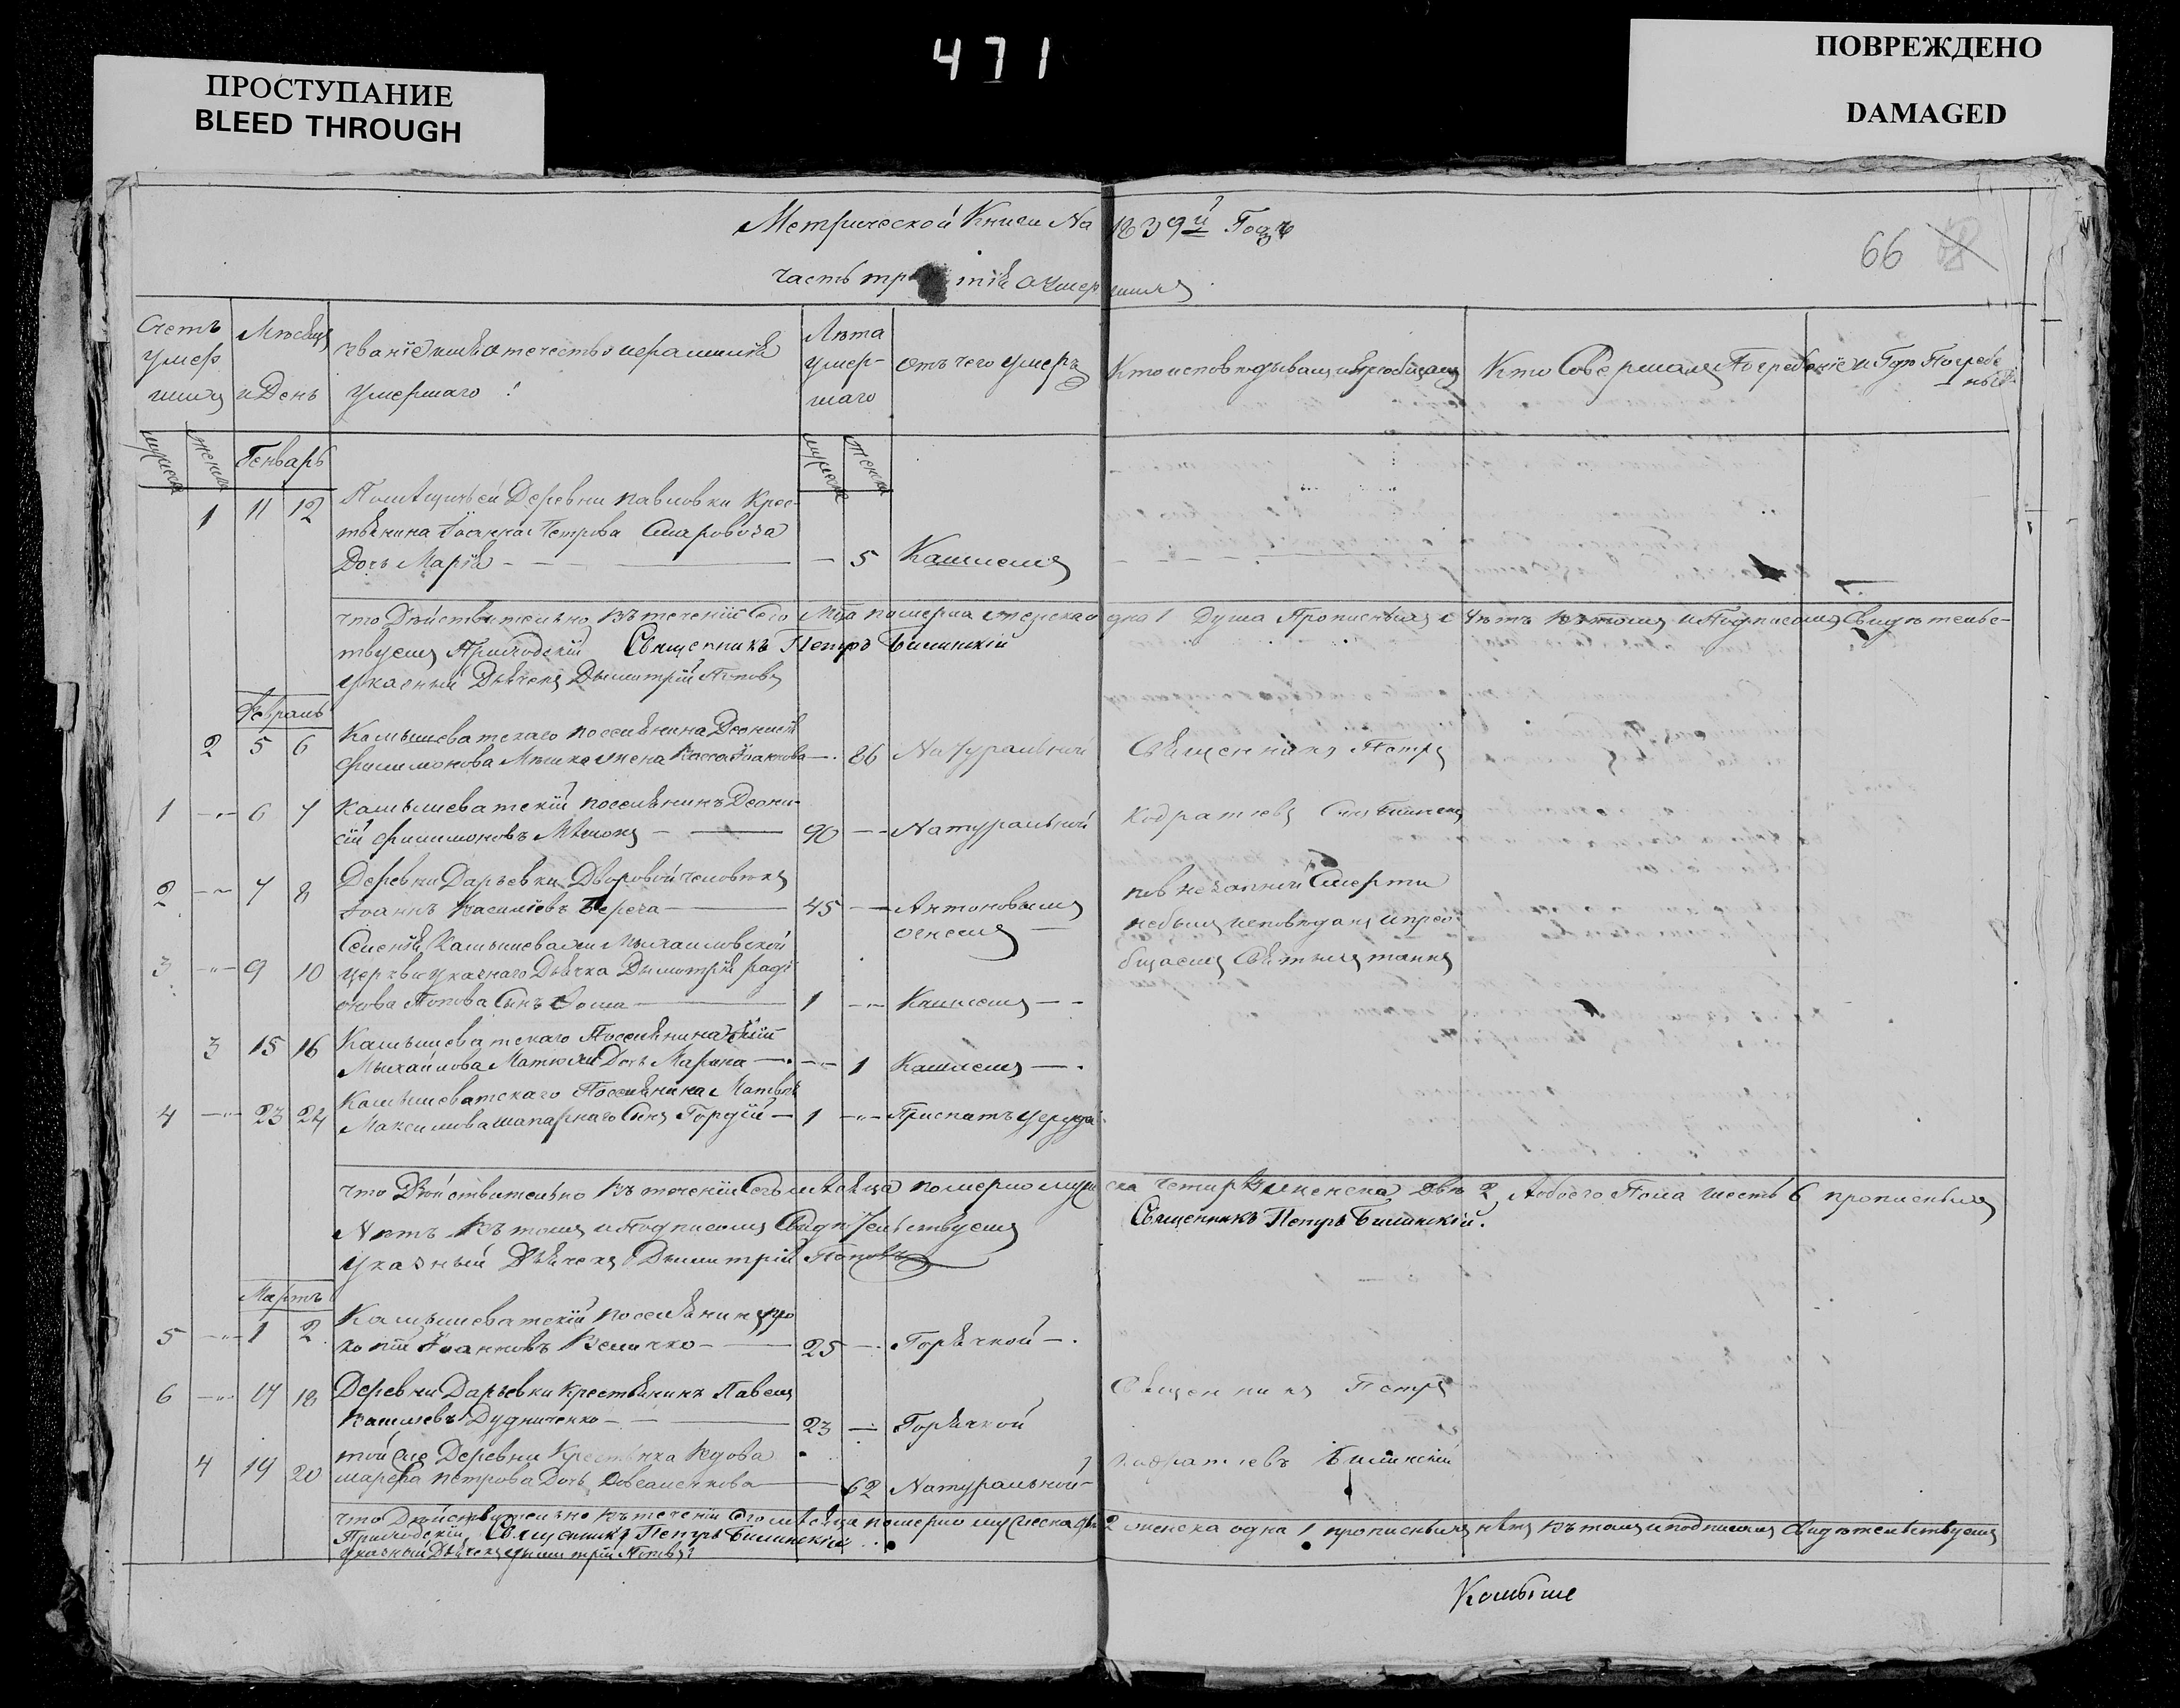 471
ПРОСТУПАНИЕ
BLEED THROUGH
ПОВРЕЖДЕНО
DAMAGED
Метрической Книги На 1839й Годъ
66
часть о умершихъ
Счетъ умер шихъ
Мѣсяцъ и День
званїе имя отечество и фамилїя умершаго
Лѣта умер- шаго
отъ чего умеръ
Кто исповѣдывалъ и прїобщалъ
Кто Совершалъ Погребенїе и Гдѣ Погребе ны
мужеска женска
мужеска женска
Генварь
1 11 12 Помѣщичьей Деревни павловки Крес-
тьянина Іоанна Петрова
Дочь Марїя — 5 Кашлемъ
что Дѣйствительно въ теченїи Сего Мца померла женска одна 1 Душа Прописныхъ нѣтъ въ томъ и Подписомъ Свидѣтельс-
твуемъ Приходскїй Священникъ Петръ Билинскїй
указный Дьячекъ Дымитрїй Поповъ
Февраль
2 5 6 Камышеватскаго поселянина Деонисїя
Филимонова жена Васса Іоаннова — 86 Натуральной Священникъ Петръ
1 — 6 7 Камышеватскїй поселянинъ Деони-
сїй Филимоновъ — 90 — Натуральной Кодратїевъ Сынъ
2 — 7 8 Деревни Дарьевки Дворовой человѣкъ
Іоаннъ Василїевъ Береза — 45 — Антоновымъ огнемъ
нечапной Смерти
небылъ исповѣданъ и прео-
бщаемъ Святыхъ таинъ
3 — 9 10 Селенїя Камышевахи Мыхаиловской
церкви указнаго Дьячка Дымитрїя Радї
онова Попова Сынъ Фома — 1 — Кашлемъ
3 15 16 Камышеватскаго Поселянина
Мыхайлова Дочь Марина — 1 Кашлемъ
4 — 23 24 Камышеватскаго Поселянина Матвея
Максимова Сынъ Гордїй — 1 —
что Дѣйствительно въ теченїи Сего мѣсяца померло мужеска четыри женска двѣ 2 Аобоего Пола шесть 6 прописныхъ
Нѣтъ въ томъ и Подписомъ Свидѣтельствуемъ Священникъ Петръ Билинскїй.
указный Дьячекъ Дымитрїй Поповъ
Мартъ
5 — 1 2 Камышеватскїй поселянинъ Про
копїй Іоанновъ Величко — 25 — Горячкой
6 — 17 18 Деревни Дарьевки крестьянинъ Павелъ
Василїевъ Дудниченко — 23 — Горячкой Священникъ Петръ
4 19 20 той же Деревни Крестьянка Вдова
Марфа Петрова Дочь — 62 Натуральной Кодратїевъ Билинскїй
что Дѣйствительно въ теченїи Сего мѣсяца померло мужеска два 2 женска одна 1 прописныхъ нѣтъ въ томъ и подписомъ Свидѣтельствуемъ
Приходскїй Священникъ Петръ Билинскїй
указный Дьячекъ Дымитрїй Поповъ
Камыше